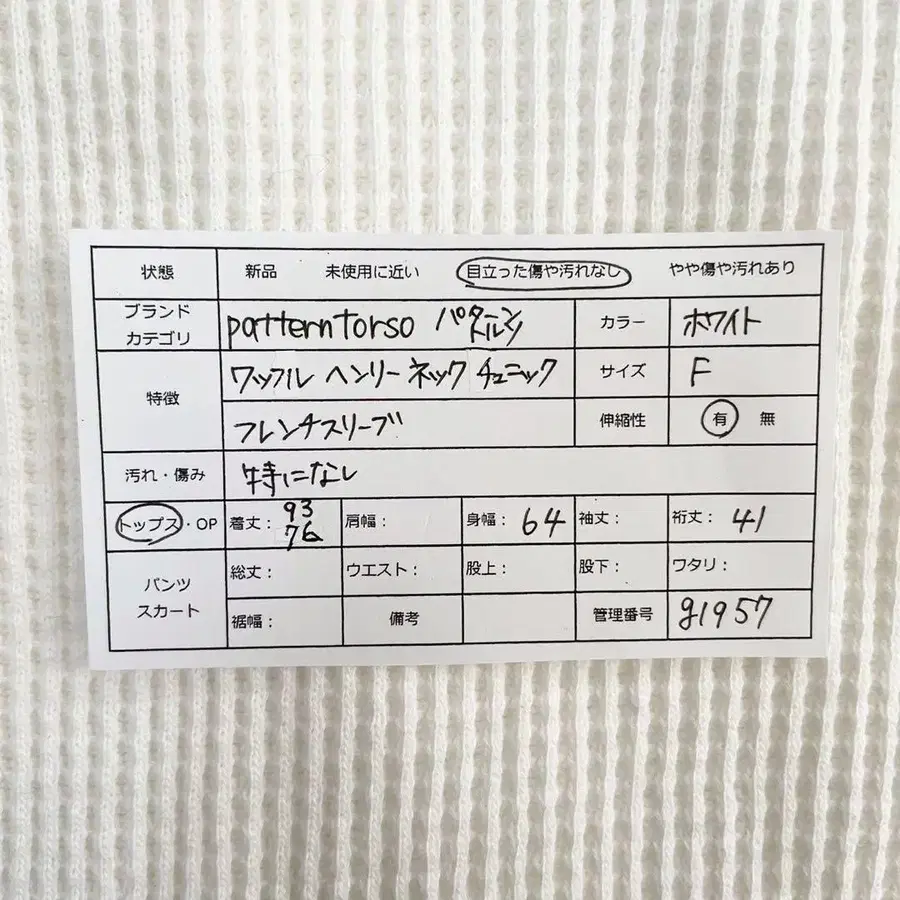 状態 新品 未使用に近い 目立った傷や汚れなし やや傷や汚れあり
ブランド
カテゴリ
patterntorso パターン
トルソ
カラー ホワイト
特徴
ワッフル ヘンリーネック チュニック
サイズ F
フレンチスリーブ
伸縮性 有 無
汚れ・傷み 特になし
トップス・OP 着丈： 93
76
肩幅： 身幅： 64 袖丈： 裄丈： 41
パンツ
スカート
総丈： ウエスト： 股上： 股下： ワタリ：
裾幅： 備考 管理番号 g1957